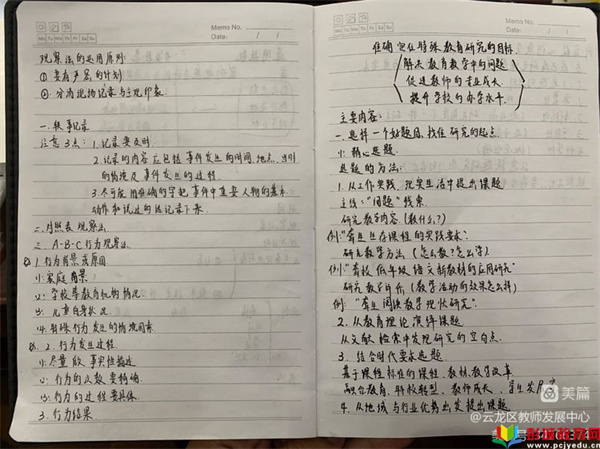 Memo No.
Mo Tu We Th Fr Sa Su
Date: / /
观察法的运用原则
① 要有严密的计划
② 分清现场记录与主观印象
一. 轶事记录
注意3点: 1. 记录要及时
2. 记录的内容应包括事件发生的时间、地点、当时
的情况及事件发生的过程
3. 尽可能用准确的字把事件中重要人物的基本
动作和说过的话记录下来.
二. 时间表观察法
三. A-B-C行为观察法.
1. 行为背景或原因
⑴. 家庭背景
⑵. 学校等教育机构情况
⑶. 儿童自身状况
⑷. 特殊行为发生的情境因素
2. 行为发生过程
⑴. 尽量做事实性描述
⑵. 行为的次数要精确.
⑶. 行为的过程要具体.
3. 行为结果
Memo No.
Mo Tu We Th Fr Sa Su
Date: / /
正确定位特殊教育研究的目标
解决教育教学中的问题
促进教师的专业成长.
提升学校的办学水平.
主要内容:
一. 选择一个好题目, 找准研究的起点.
⑴. 精心选题.
选题的方法:
1. 从工作实践, 现实生活中提出课题
主线: "问题"线索.
研究教学内容. (教什么?)
例:
研究教学方法 (怎么教? 怎么学)
例: "聋校低年级语文新教材的应用研究"
研究教学评价 (教学活动的效果怎么样)
例: "聋生阅读教学现状研究".
2. 从教育理论演绎课题
从文献检索中发现研究的空白点.
3. 结合时代要求选题
基于课程标准的课程, 教材, 教学改革
融合教育, 特校转型, 教师成长,
4. 从地域与行业优势出发提出课题
美篇
@云龙区教师发展中心
彭城教育网
www.pcjyedu.cn